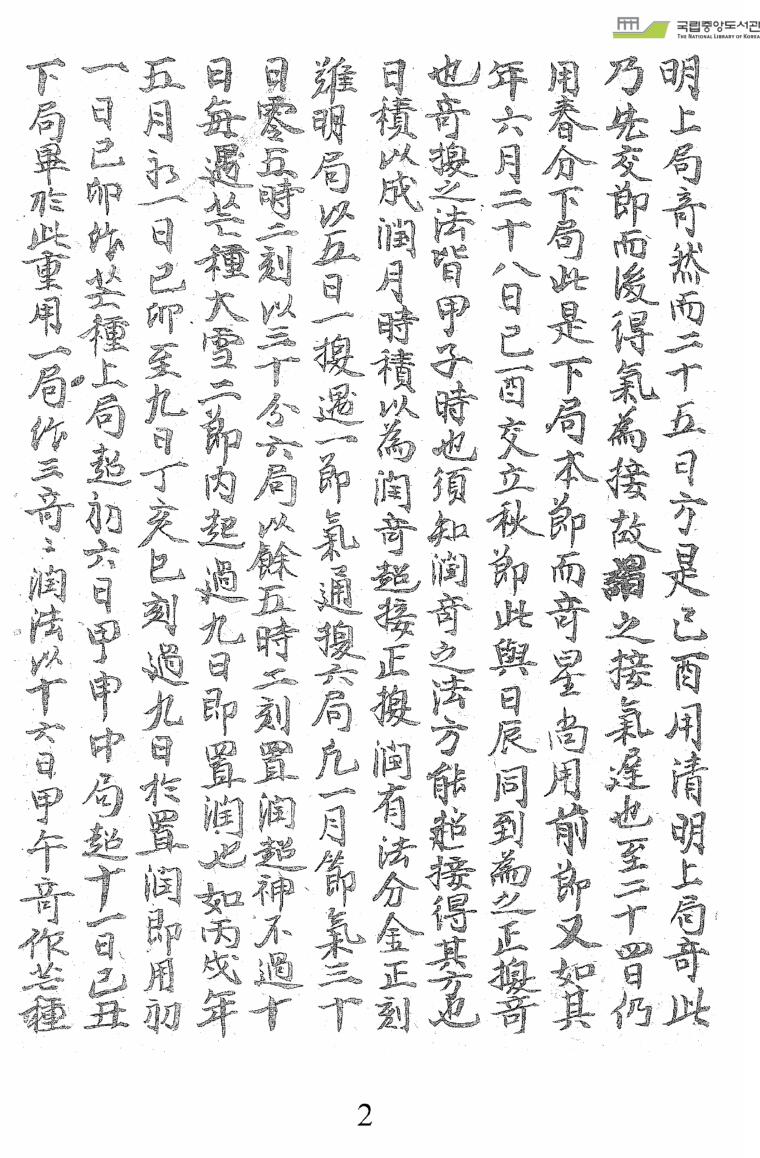 국립중앙도서관
THE NATIONAL LIBRARY OF KOREA
明上局竒然而二十五日方是己酉用清明上局竒此
乃先交節而後得氣為接故謂之接氣遅也至二十四日仍
用春分下局此是下局本節而竒星尚用前節又如其
年六月二十八日己酉交立秋節此與日辰同到為之正換竒
也竒換之法皆甲子時也須知润竒之法方能超接得其方也
日積以成润月時積以為润竒超接正換润有法分金正刻
難明局以五日一換遇一節氣通換六局凢一月節氣三十
日零五時二刻以三十分六局以餘五時二刻置润超神不過十
日每遇芒種大雪二節内起過九日即置润也如丙戌年
五月初一日己卯至九日丁亥巳刻過九日於置润即用初
一日己卯作芒種上局超初六日甲申中局超十一日己丑
下局畢於此重用一局作三竒〻润法以十六日甲午竒作芒種
2